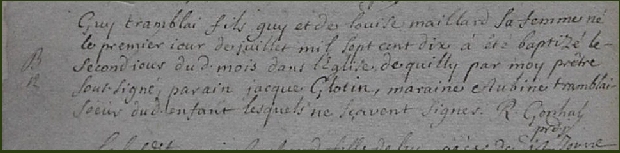 Guy tramblai fils guy et de louise maillard sa femme né
le premier iour de juillet mil sept cent dix a été baptizé le
second iour dud. mois dans l'église de quilly par moy prêtre
B
sous signé, parain jacque Glotin, maraine Aubine tramblai
soeur dud. enfant lesquels ne scavent signer. R Gonhay
prêtre